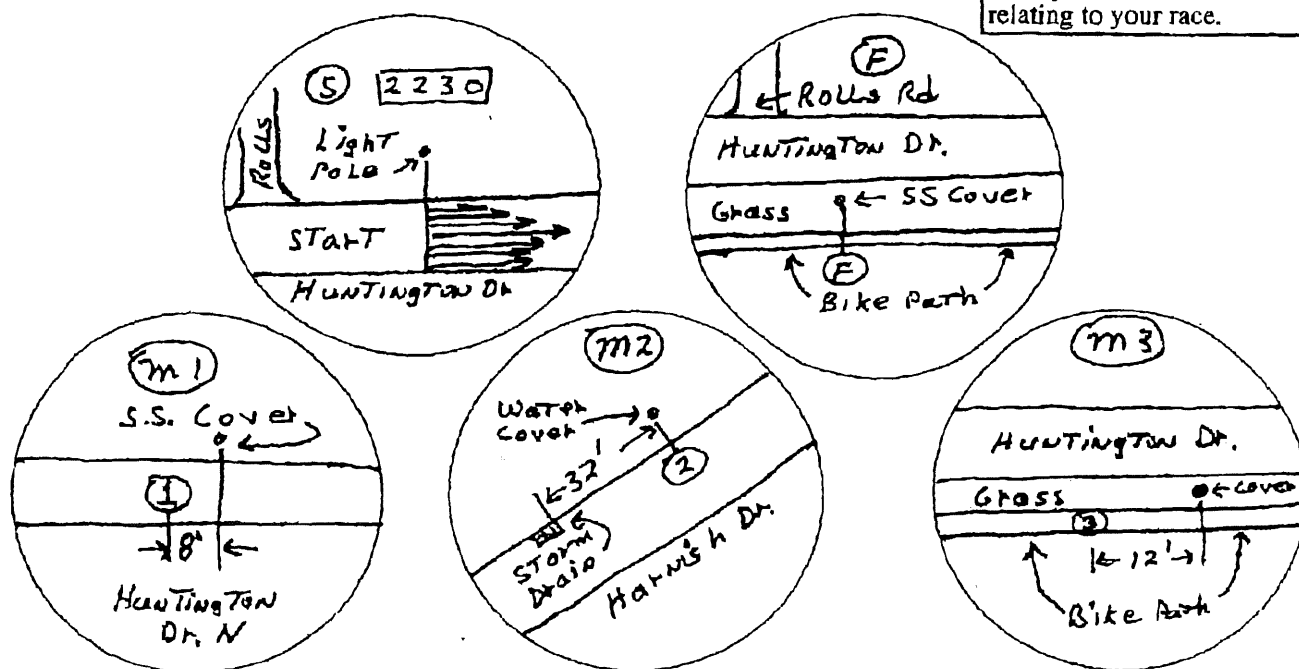 relating to your race.
S 2230
Rolls
Light
Pole
START
HUNTINGTON Dr
F
Rolls Rd
HUNTINGTON Dr.
Grass
SS Cover
F
Bike Path
M1
S.S. Cover
1
8'
HUNTINGTON
Dr. N
M2
Water
Cover
32'
2
Storm
Drain
Harnish Dr.
M3
HUNTINGTON Dr.
Grass
Cover
3
12'
Bike Path